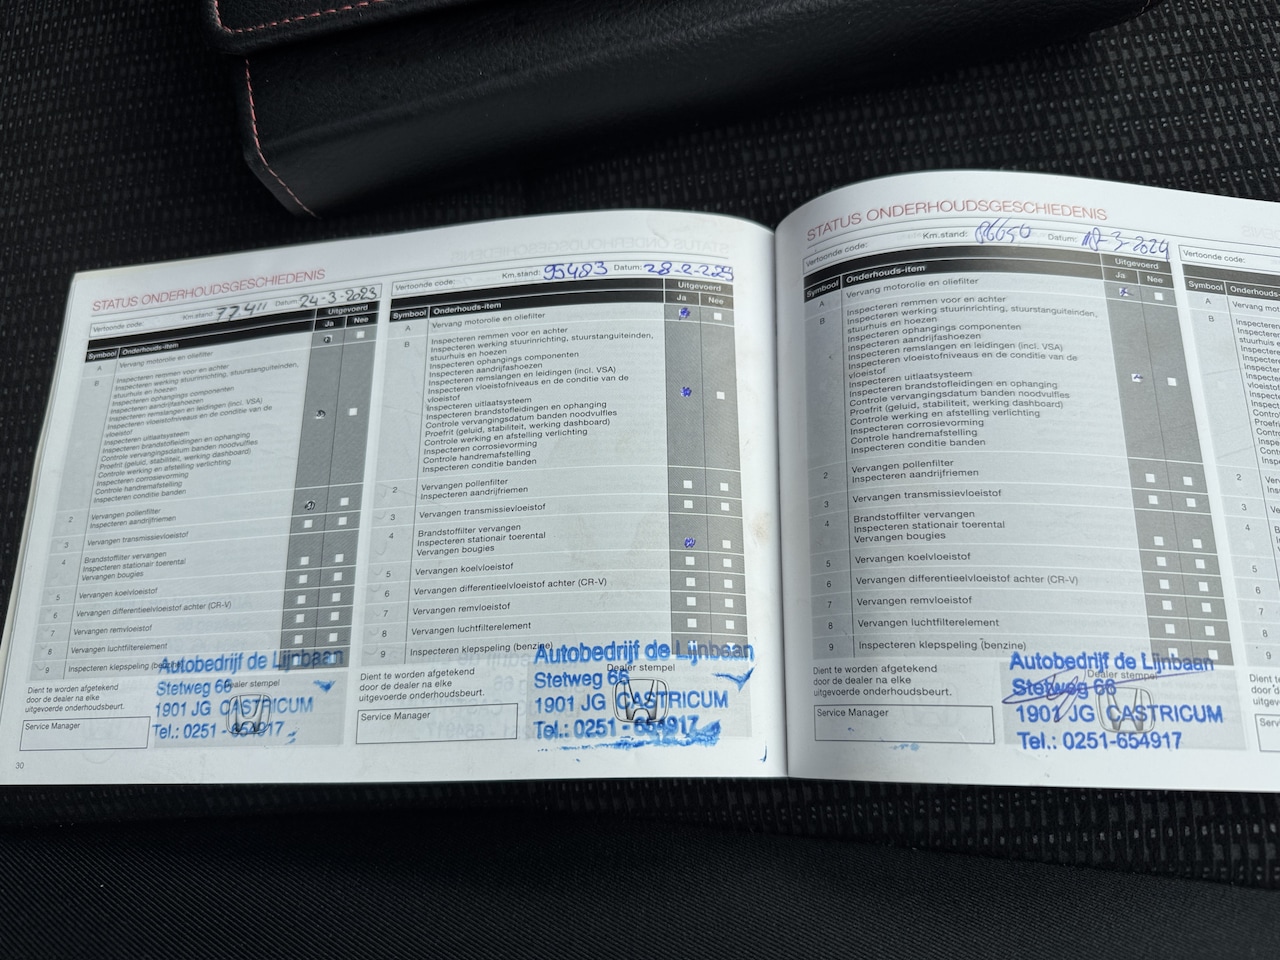 STATUS ONDERHOUDSGESCHIEDENIS
Vertoonde code:
Km.stand: 77411 Datum: 24-3-2023
Symbool Onderhouds-item Uitgevoerd
Ja Nee
A Vervang motorolie en oliefilter
B Inspecteren remmen voor en achter
Inspecteren werking stuurinrichting, stuurstanguiteinden,
stuurhuis en hoezen
Inspecteren ophangings componenten
Inspecteren aandrijfashoezen
Inspecteren remslangen en leidingen (incl. VSA)
Inspecteren vloeistofniveaus en de conditie van de
vloeistof
Inspecteren uitlaatsysteem
Inspecteren brandstofleidingen en ophanging
Controle vervangingsdatum banden noodvulfles
Proefrit (geluid, stabiliteit, werking dashboard)
Controle werking en afstelling verlichting
Inspecteren corrosievorming
Controle handremafstelling
Inspecteren conditie banden
2 Vervangen pollenfilter
Inspecteren aandrijfriemen
3 Vervangen transmissievloeistof
4 Brandstoffilter vervangen
Inspecteren stationair toerental
Vervangen bougies
5 Vervangen koelvloeistof
6 Vervangen differentieelvloeistof achter (CR-V)
7 Vervangen remvloeistof
8 Vervangen luchtfilterelement
9 Inspecteren klepspeling
Dient te worden afgetekend
door de dealer na elke
uitgevoerde onderhoudsbeurt.
Service Manager
Dealer stempel
Autobedrijf de Lijnbaan
Stetweg 66
1901 JG CASTRICUM
Tel.: 0251 - 654917
30
Vertoonde code:
Km.stand: 95483 Datum: 28-2-2025
Symbool Onderhouds-item Uitgevoerd
Ja Nee
A Vervang motorolie en oliefilter
B Inspecteren remmen voor en achter
Inspecteren werking stuurinrichting, stuurstanguiteinden,
stuurhuis en hoezen
Inspecteren ophangings componenten
Inspecteren aandrijfashoezen
Inspecteren remslangen en leidingen (incl. VSA)
Inspecteren vloeistofniveaus en de conditie van de
vloeistof
Inspecteren uitlaatsysteem
Inspecteren brandstofleidingen en ophanging
Controle vervangingsdatum banden noodvulfles
Proefrit (geluid, stabiliteit, werking dashboard)
Controle werking en afstelling verlichting
Inspecteren corrosievorming
Controle handremafstelling
Inspecteren conditie banden
2 Vervangen pollenfilter
Inspecteren aandrijfriemen
3 Vervangen transmissievloeistof
4 Brandstoffilter vervangen
Inspecteren stationair toerental
Vervangen bougies
5 Vervangen koelvloeistof
6 Vervangen differentieelvloeistof achter (CR-V)
7 Vervangen remvloeistof
8 Vervangen luchtfilterelement
9 Inspecteren klepspeling (benzine)
Dient te worden afgetekend
door de dealer na elke
uitgevoerde onderhoudsbeurt.
Service Manager
Dealer stempel
Autobedrijf de Lijnbaan
Stetweg 66
1901 JG CASTRICUM
Tel.: 0251 - 654917
STATUS ONDERHOUDSGESCHIEDENIS
Vertoonde code:
Km.stand: 86650 Datum: 18-3-2024
Symbool Onderhouds-item Uitgevoerd
Ja Nee
A Vervang motorolie en oliefilter
B Inspecteren remmen voor en achter
Inspecteren werking stuurinrichting, stuurstanguiteinden,
stuurhuis en hoezen
Inspecteren ophangings componenten
Inspecteren aandrijfashoezen
Inspecteren remslangen en leidingen (incl. VSA)
Inspecteren vloeistofniveaus en de conditie van de
vloeistof
Inspecteren uitlaatsysteem
Inspecteren brandstofleidingen en ophanging
Controle vervangingsdatum banden noodvulfles
Proefrit (geluid, stabiliteit, werking dashboard)
Controle werking en afstelling verlichting
Inspecteren corrosievorming
Controle handremafstelling
Inspecteren conditie banden
2 Vervangen pollenfilter
Inspecteren aandrijfriemen
3 Vervangen transmissievloeistof
4 Brandstoffilter vervangen
Inspecteren stationair toerental
Vervangen bougies
5 Vervangen koelvloeistof
6 Vervangen differentieelvloeistof achter (CR-V)
7 Vervangen remvloeistof
8 Vervangen luchtfilterelement
9 Inspecteren klepspeling (benzine)
Dient te worden afgetekend
door de dealer na elke
uitgevoerde onderhoudsbeurt.
Service Manager
Dealer stempel
Autobedrijf de Lijnbaan
Stetweg 66
1901 JG CASTRICUM
Tel.: 0251-654917
Vertoonde code:
Symbool Onderhouds-
A Vervang mot
B
2
3
4
5
6
7
8
9